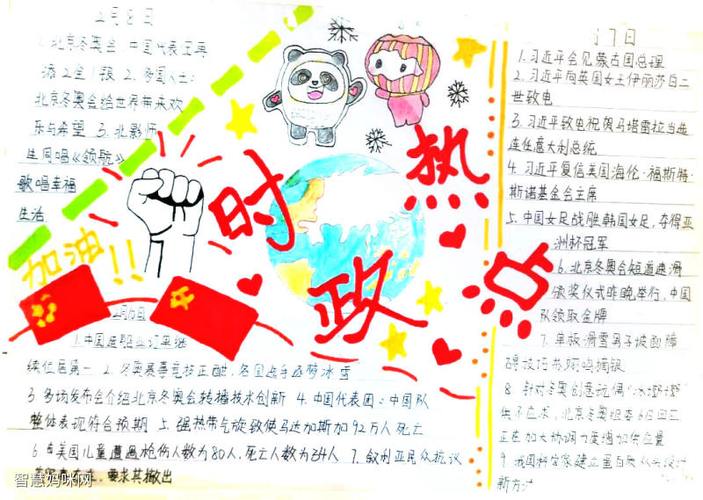 2月8日
1. 北京冬奥会 中国代表团再
添2金1银 2. 多国人士:
北京冬奥会给世界带来欢
乐与希望 3. 北影师
生同唱《领航》
歌唱幸福
生活
加油!!
时政热点
月7日
1. 习近平会见蒙古国总理
2. 习近平向英国女王伊丽莎白二
世致电
3. 习近平致电祝贺马塔雷拉当选
连任意大利总统
4. 习近平复信英国海伦·福斯特·
斯诺基金会主席
5. 中国女足战胜韩国女足,夺得亚
洲杯冠军
6. 北京冬奥会短道速滑
颁奖仪式昨晚举行,中国
队领取金牌
7. 单板滑雪男子坡面障
碍技巧苏翊鸣摘银
8. 针对冬奥创意玩偶"冰墩墩"
供不应求,北京冬奥组委6日回应
正在加大协调力度增加供应量
9. 我国科学家建立蛋白质从头设计
新方法
月6日
1. 中国造船业订单继
续位居第一 2. 冬奥赛事竞技正酣,各国选手逐梦冰雪
3. 多场发布会介绍北京冬奥会转播技术创新 4. 中国代表团:中国队
整体表现符合预期 5. 强热带气旋致使马达加斯加92万人死亡
6. 美国儿童遭遇枪伤人数为80人,死亡人数为24人 7. 叙利亚民众抗议
要求其撤出
智慧妈咪网